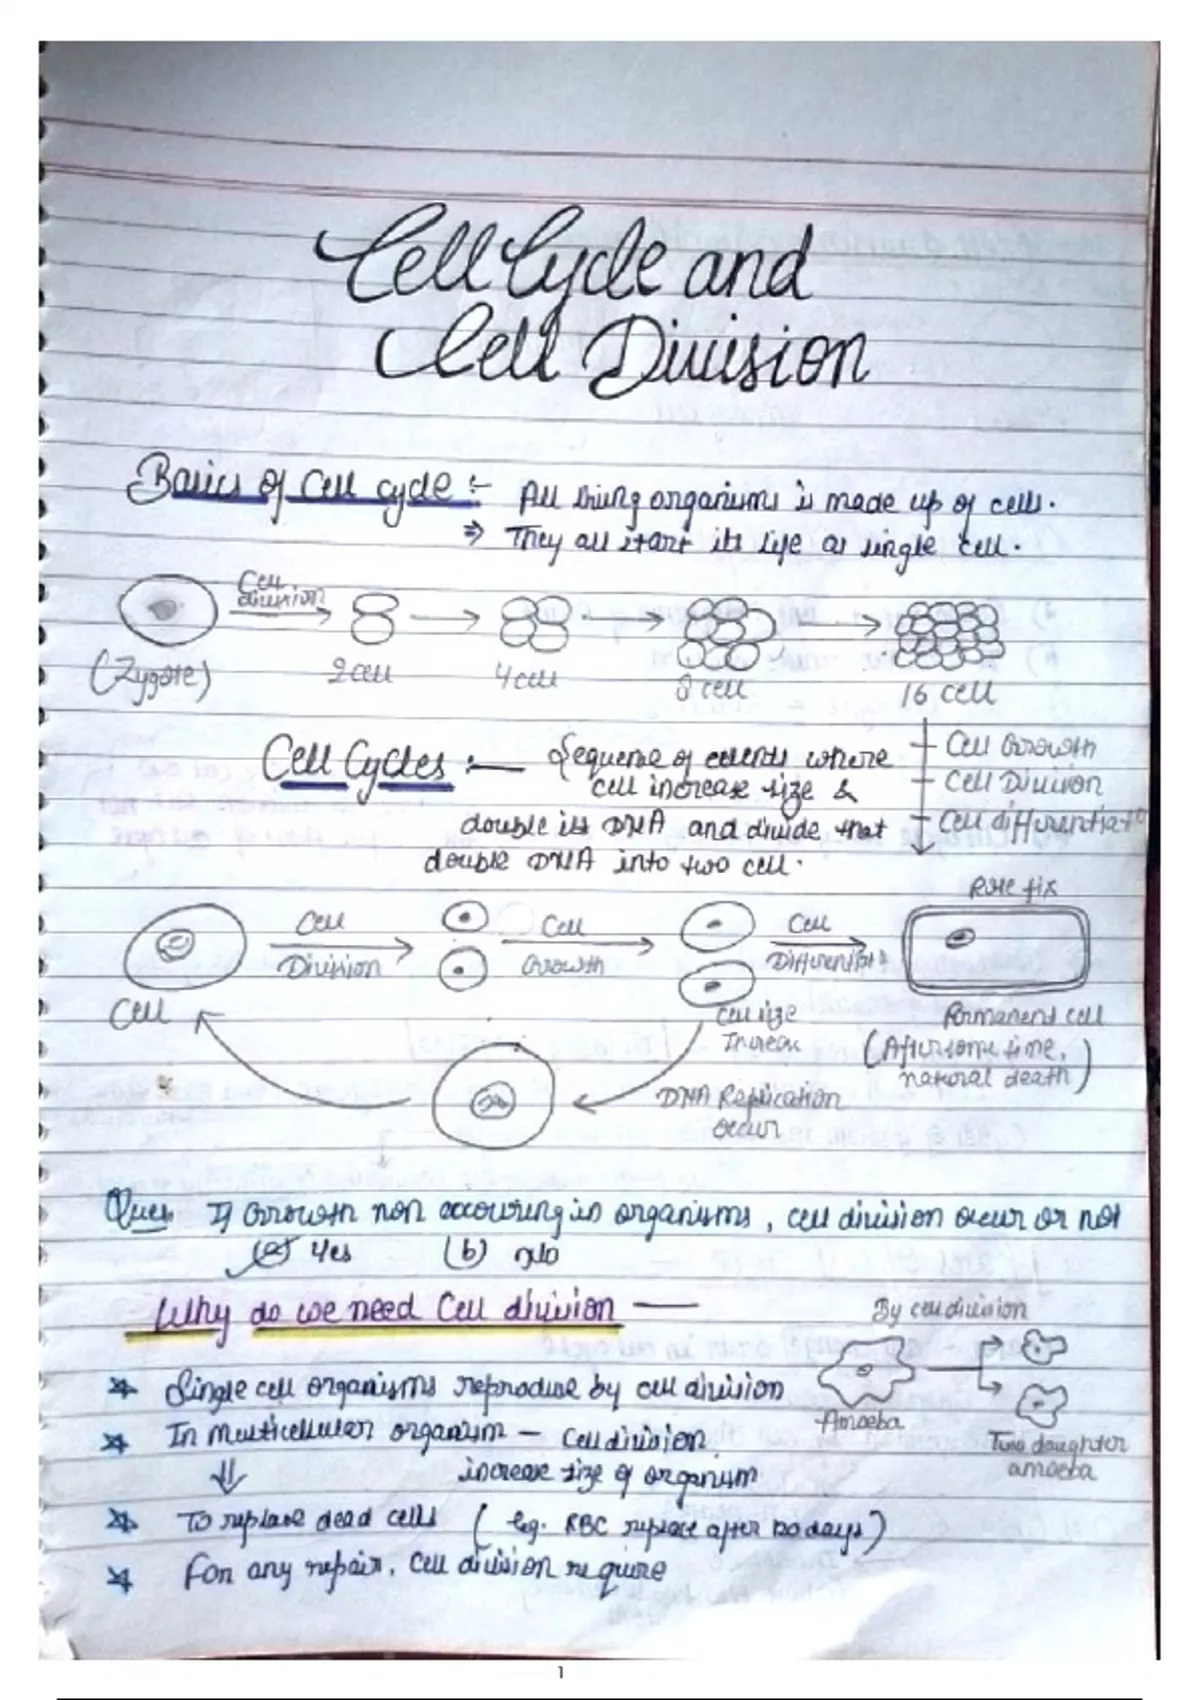 Cell Cycle and
Cell Division
Basics of Cell cycle :- All living organisms is made up of cells.
⇒ They all start its life as single cell.
Cell division
(Zygote) 2 cell 4 cell 8 cell 16 cell
Cell Growth
Cell Division
Cell differentiat
Cell Cycles :— Sequence of events where
cell increase size &
double its DNA and divide that
double DNA into two cell.
Role fix
Cell Division
Cell Growth
Cell
Cell
Cell size
Increase
Permanent cell
(After some time,
natural death)
DNA Replication
occur
Ques If Growth non occouring in organisms, cell division occur or not
(a) Yes (b) No
Why do we need Cell division —
By cell division
Single cell organisms reproduce by cell division
Amoeba
Two daughter
amoeba
In Multicellular organism — Cell division
⇓ increase size of organism
To replace dead cells (eg. RBC replace after 120 days)
For any repair, cell division require
1